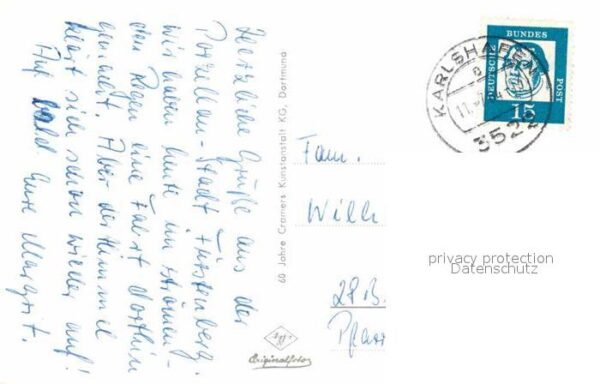 Herzliche Grüße aus der
Porzellan-Stadt Fürstenberg.
Wir haben heute im strömen-
den Regen eine Fahrt dorthin
gemacht. Aber der Himmel
klärt sich schon wieder auf!
Auf bald Eure Margrit.
60 Jahre Cramers Kunstanstalt KG, Dortmund
Agfa
Originalfoto
Fam.
Willi
Pfarr
KARLSHAFEN
3522
DEUTSCHE BUNDES POST
15
privacy protection
Datenschutz